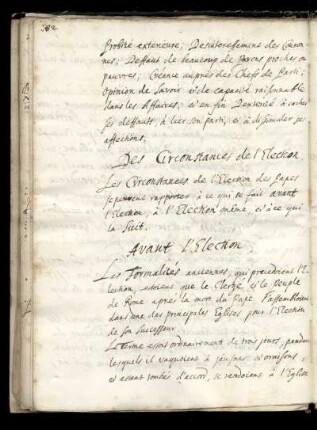 382
Probité exterieure; Desinteressement des Couron-
nes; Deffaut de beaucoup de Parens proches ou
pauvres; Creance auprés des Chefs de Parti;
Opinion de Savoir et de capacité raisonnable
dans les Affaires; et en fin Dexterité à cacher
ses deffauts, à lier son parti, et à dissimuler ses
affections.
Des Circonstances de l'Election
Les Circonstances de l'Election des Papes
se peuvent rapporter à ce qui se fait avant
l'Election, à l'Election même, et à ce qui
la suit.
Avant l'Election
Les Formalités anciennes, qui precedoient l'E-
lection, estoient que le Clergé et le Peuple
de Rome après la mort du Pape s'assembloient
dans une des principales Eglises pour l'Election
de son Successeur.
Le terme estoit ordinairement de trois jours, pendant
lesquels il vaquoient à jeusnes, et oraisons,
et estant tombés d'accord, se rendoient à l'Eglise